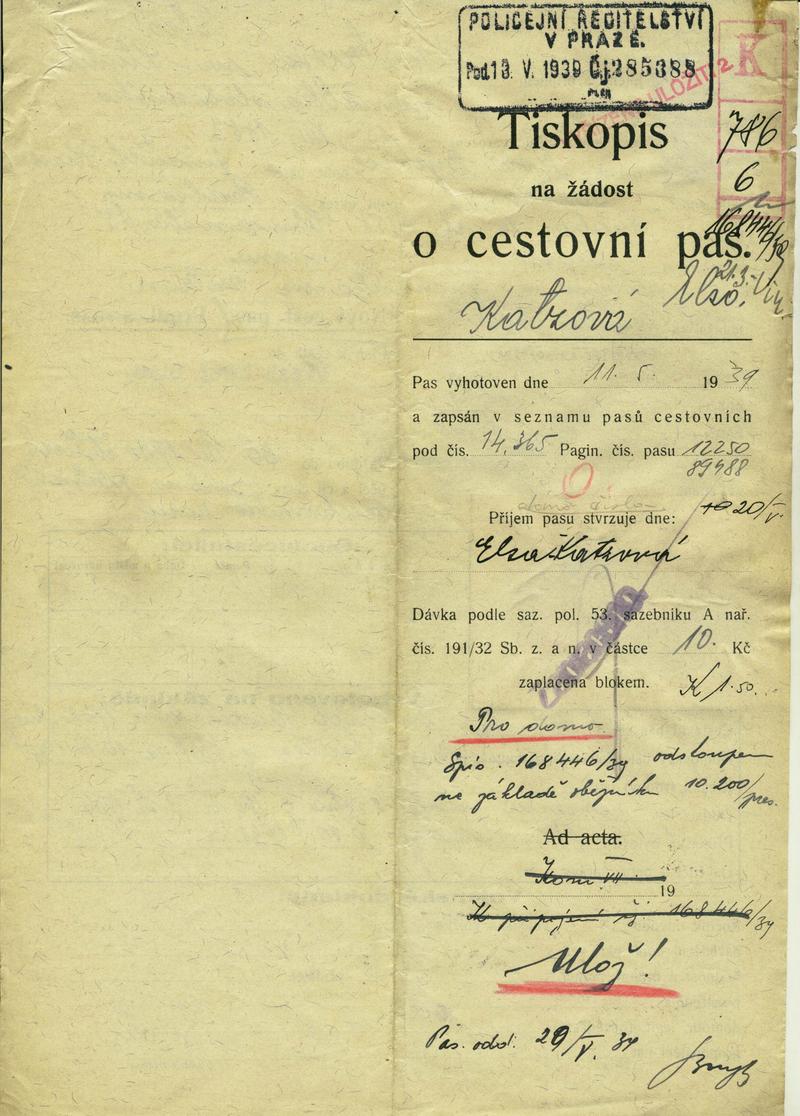 POLICEJNÍ ŘEDITELSTVÍ
V PRAZE.
Pod. 13. V. 1939 Čj. 285388
K
786
6
Tiskopis
na žádost
o cestovní pas.
168446/39
21.3.
Katzová Elsa,
Pas vyhotoven dne 11. 5. 1939
a zapsán v seznamu pasů cestovních
pod čís. 14.365 Pagin. čís. pasu 12250
89488
Příjem pasu stvrzuje dne: 20/V.
Elsa Katzová
Dávka podle saz. pol. 53. sazebniku A nař.
čís. 191/32 Sb. z. a n. v částce 10. Kč
zaplacena blokem. K 1.50.
Pro domo
Spis. 168446/39 odstoupen
na základě oběžníku 10.200/pres.
Ad acta.
19
K připojení čj. 168446/39
Ulož!
Pas. odsl. 29/V. 39